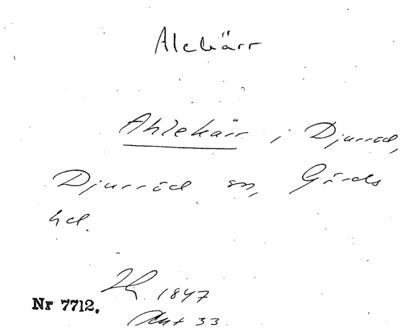 Alekärr
Ahlekärr i Djurröd,
Djurröd sn, Gärds
hd.
1847
Nr 7712.
Akt 33.